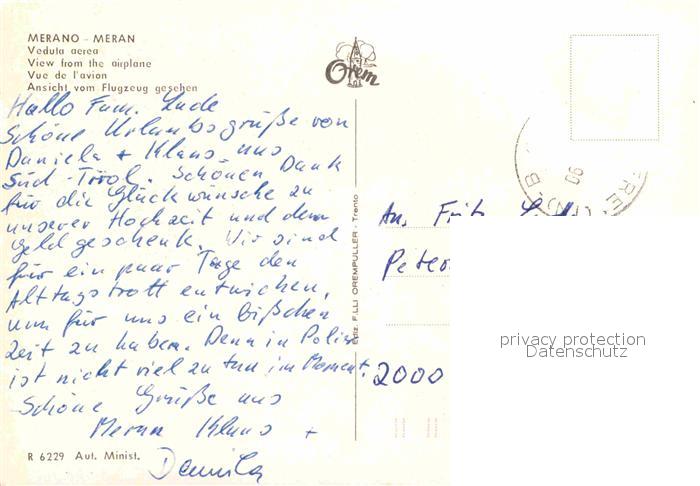 MERANO - MERAN
Veduta aerea
View from the airplane
Vue de l'avion
Ansicht vom Flugzeug gesehen
Orem
Hallo Fam.
Schöne Urlaubsgrüße von
Daniela + Klaus aus
Süd-Tirol. Schönen Dank
für die Glückwünsche zu
unserer Hochzeit und dem
Geldgeschenk. Wir sind
für ein paar Tage den
Alltagstrott entwichen,
um für uns ein bißchen
Zeit zu haben. Denn in
ist nicht viel zu tun im Moment.
Schöne Grüße aus
Meran Klaus +
Daniela
R 6229 Aut. Minist.
Ediz. F.LLI OREMPULLER - Trento
An. Fritz
Peter
2000
privacy protection
Datenschutz